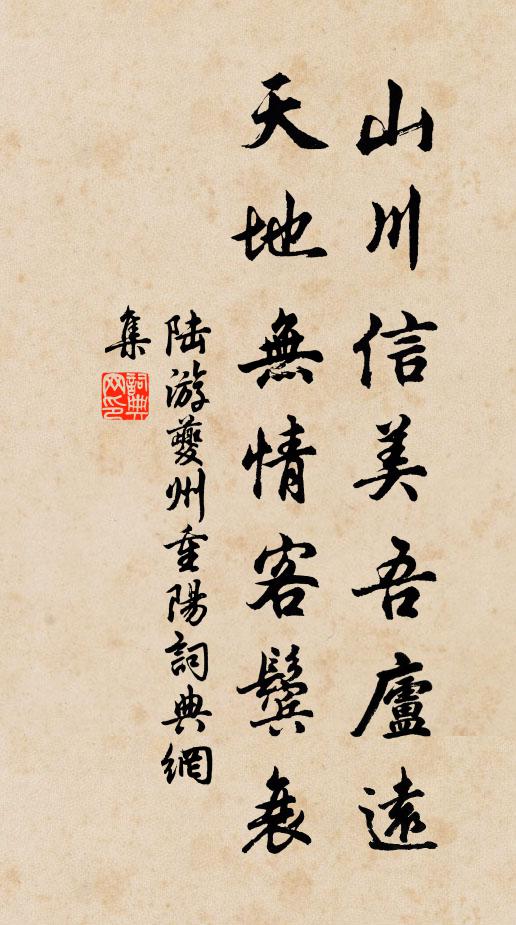 山川信美吾廬遠
天地無情客鬢衰
陸游夔州重陽詞典網
集
詞典网印